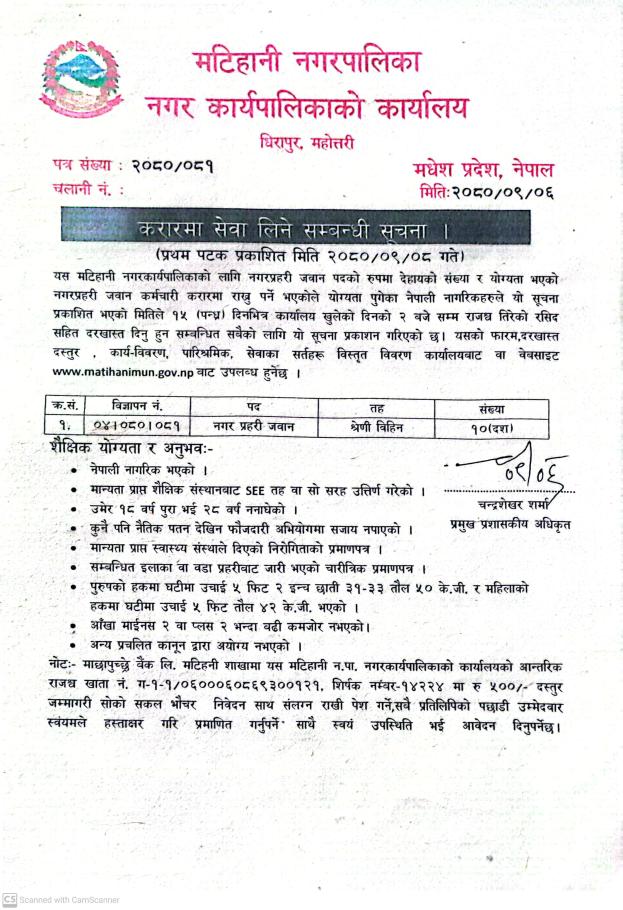 मटिहानी नगरपालिका
नगर कार्यपालिकाको कार्यालय
धिरापुर, महोत्तरी
पत्र संख्या : २०८०/०८१
मधेश प्रदेश, नेपाल
चलानी नं. :
मिति:२०८०/०९/०६
करारमा सेवा लिने सम्बन्धी सूचना ।
(प्रथम पटक प्रकाशित मिति २०८०/०९/०८ गते)
यस मटिहानी नगरकार्यपालिकाको लागि नगरप्रहरी जवान पदको रुपमा देहायको संख्या र योग्यता भएको
नगरप्रहरी जवान कर्मचारी करारमा राख्नु पर्ने भएकोले योग्यता पुगेका नेपाली नागरिकहरुले यो सूचना
प्रकाशित भएको मितिले १५ (पन्ध्र) दिनभित्र कार्यालय खुलेको दिनको २ बजे सम्म राजश्व तिरेको रसिद
सहित दरखास्त दिनु हुन सम्बन्धित सबैको लागि यो सूचना प्रकाशन गरिएको छ। यसको फारम,दरखास्त
दस्तुर , कार्य-विवरण, पारिश्रमिक, सेवाका सर्तहरू विस्तृत विवरण कार्यालयबाट वा वेबसाइट
www.matihanimun.gov.np बाट उपलब्ध हुनेछ ।
क्र.सं. विज्ञापन नं. पद तह संख्या
१. ०४।०८०।०८१ नगर प्रहरी जवान श्रेणी विहिन १०(दश)
शैक्षिक योग्यता र अनुभवः-
• नेपाली नागरिक भएको ।
• मान्यता प्राप्त शैक्षिक संस्थानबाट SEE तह वा सो सरह उत्तिर्ण गरेको ।
• उमेर १८ वर्ष पुरा भई २८ वर्ष ननाघेको ।
• कुनै पनि नैतिक पतन देखिन फौजदारी अभियोगमा सजाय नपाएको ।
• मान्यता प्राप्त स्वास्थ्य संस्थाले दिएको निरोगिताको प्रमाणपत्र ।
• सम्बन्धित इलाका वा वडा प्रहरीबाट जारी भएको चारीत्रिक प्रमाणपत्र ।
• पुरुषको हकमा घटीमा उचाई ५ फिट २ इन्च छाती ३१-३३ तौल ५० के.जी. र महिलाको
हकमा घटीमा उचाई ५ फिट तौल ४२ के.जी. भएको ।
• आँखा माईनस २ वा प्लस २ भन्दा बढी कमजोर नभएको।
• अन्य प्रचलित कानून द्वारा अयोग्य नभएको ।
०९/०६
चन्द्रशेखर शर्मा
प्रमुख प्रशासकीय अधिकृत
नोटः- माछापुच्छ्रे बैंक लि. मटिहनी शाखामा यस मटिहनी न.पा. नगरकार्यपालिकाको कार्यालयको आन्तरिक
राजश्व खाता नं. ग-१-१/०६०००६०८६९३००१२१, शिर्षक नम्बर-१४२२४ मा रु ५००/- दस्तुर
जम्मागरी सोको सकल भौचर निवेदन साथ संलग्न राखी पेश गर्ने,सबै प्रतिलिपिको पछाडी उम्मेदबार
स्वंयमले हस्ताक्षर गरि प्रमाणित गर्नुपर्ने साथै स्वयं उपस्थिति भई आवेदन दिनुपर्नेछ।
CS Scanned with CamScanner